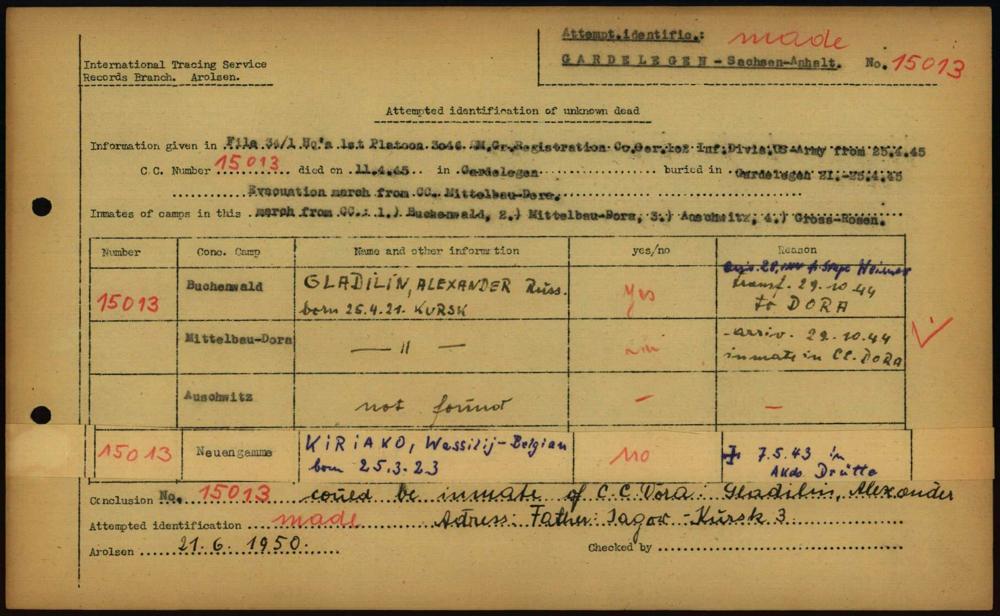 Attempt.identific.: made
GARDELEGEN - Sachsen-Anhalt. No. 15013
International Tracing Service
Records Branch. Arolsen.
Attempted identification of unknown dead
Information given in File 36/1 Hq's 1st Platoon 3046 Gr.Registration Co. Inf.Divis.US-Army from 25.4.45
C.C. Number 15013 died on 11.4.45 in Gardelegen buried in Gardelegen 21.-25.4.45
Evacuation march from CC. Mittelbau-Dora.
Inmates of camps in this march from CC.: 1.) Buchenwald, 2.) Mittelbau-Dora, 3.) Auschwitz, 4.) Gross-Rosen.
Number Conc. Camp Name and other information yes/no Reason
15013 Buchenwald GLADILIN, ALEXANDER Russ. born 25.4.21. KURSK yes transf. 29.10.44 to DORA
Mittelbau-Dora — " — arriv. 29.10.44 inmate in CC. DORA
Auschwitz not found — —
15013 Neuengamme KIRIAKO, Wassilij-Belgian born 25.3.23 no 7.5.43 in Akdo. Drütte
Conclusion No. 15013 could be inmate of C.C. Dora: Gladilin, Alexander
Attempted identification made Adress: Father: Jagow - Kursk 3
Arolsen 21.6.1950. Checked by